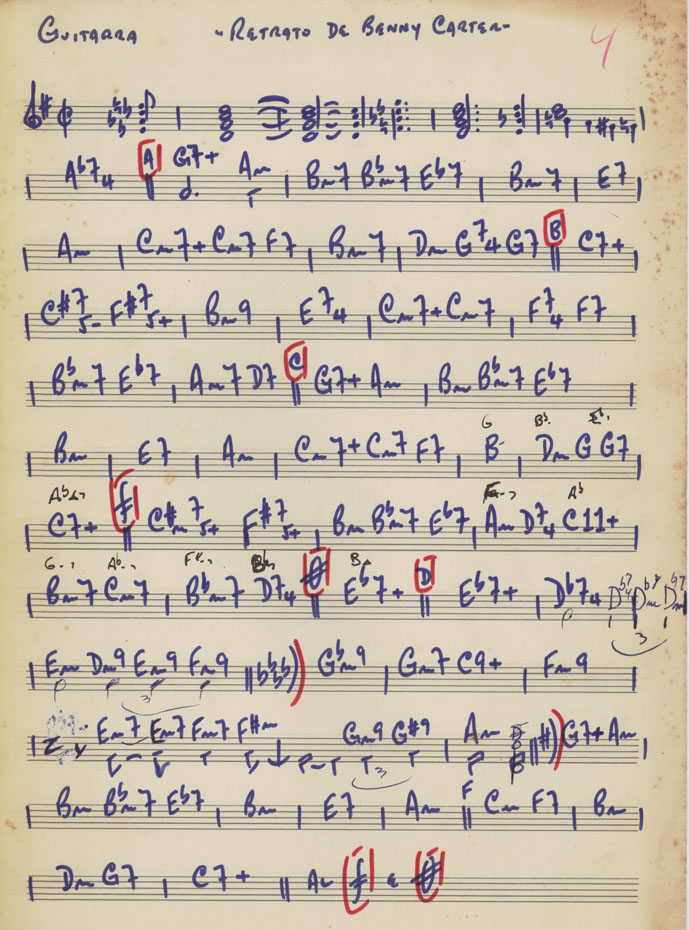 GUITARRA "RETRATO DE BENNY CARTER" 4
Ab7 4 A G7+ Am Bm7 Bbm7 Eb7 Bm7 E7
Am Cm7+ Cm7 F7 Bm7 Dm G7 4 G7 B C7+
C#7 5- F#7 5+ Bm9 E7 4 Cm7+ Cm7 F7 4 F7
Bbm7 Eb7 Am7 D7 C G7+ Am Bm Bbm7 Eb7
G Bb.
Bm E7 Am Cm7+ Cm7 F7 B- Dm G G7
Ab
C7+ C#m7 5+ F#7 5+ Bm Bbm7 Eb7 Am D7 4 C11+
Bm7 Cm7 Bbm7 D7 4 Eb7+ D Eb7+ Db7 4
Em Dm9 Em9 Fm9 Gbm9 Gm7 C9+ Fm9
3
Em7 Em7 Fm7 F#m Gm9 G#9 Am G7+ Am
3
Bm Bbm7 Eb7 Bm E7 Am F Cm F7 Bm
Dm G7 C7+ AL e